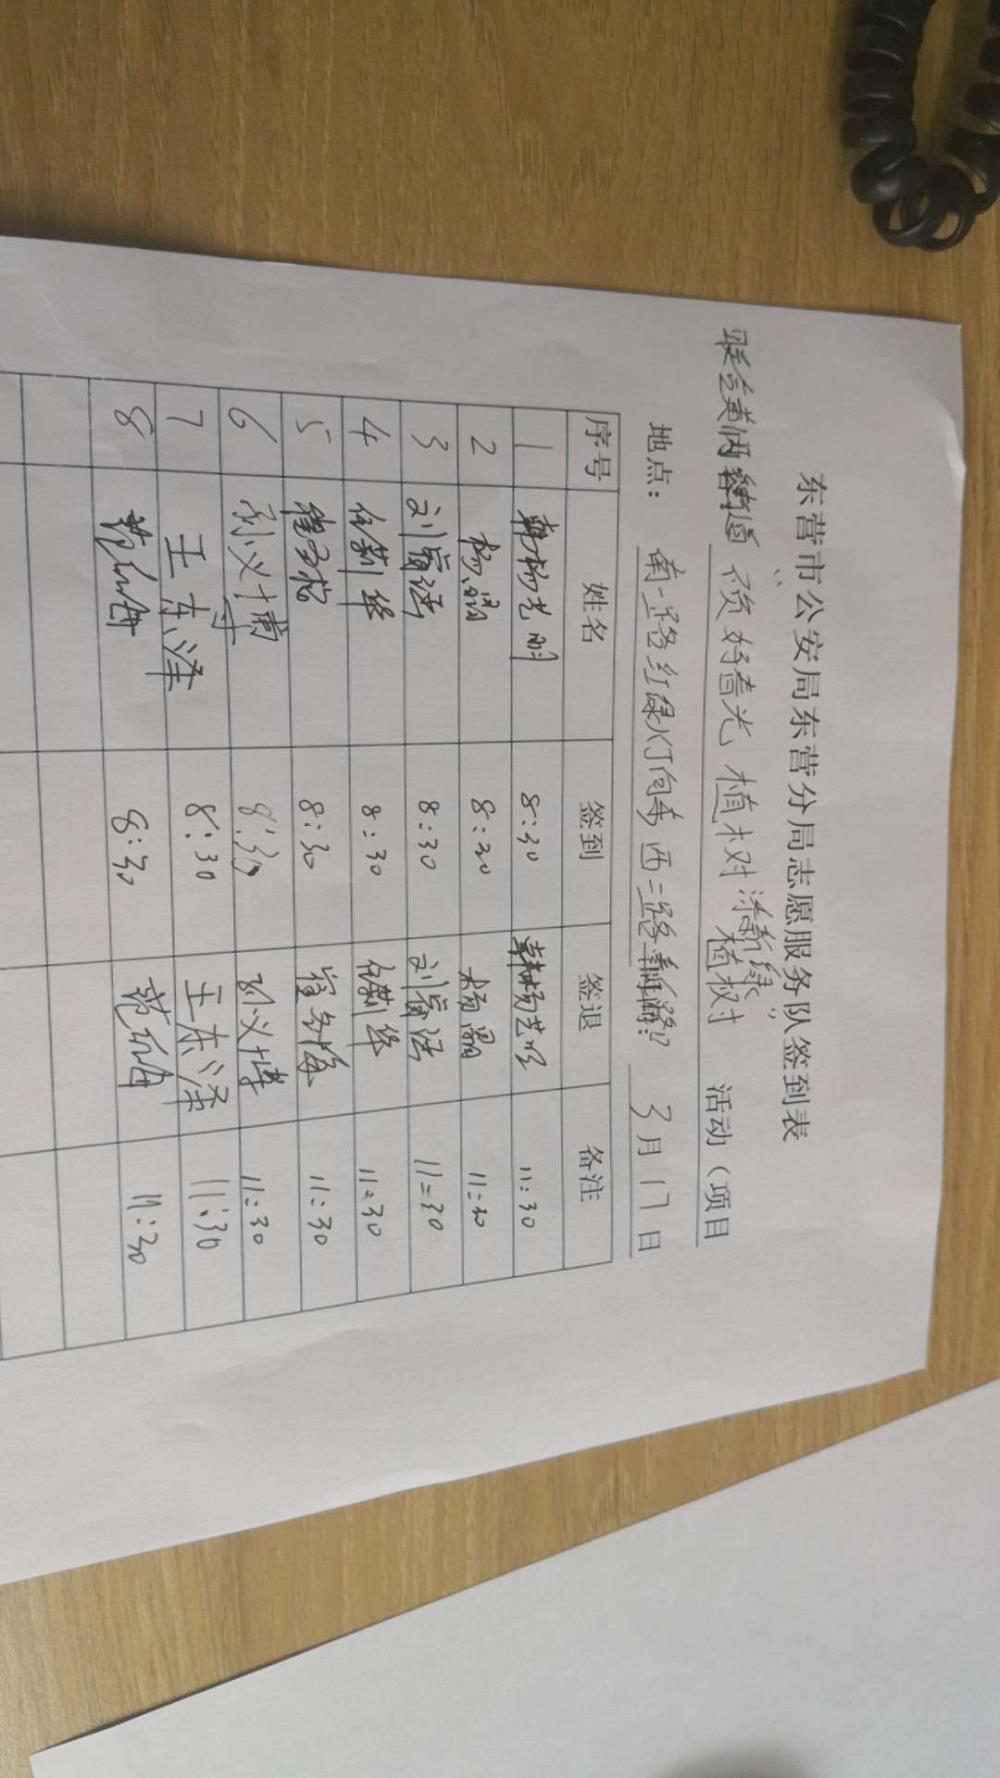 东营市公安局东营分局志愿服务队签到表
不负好春光 植树添新绿”
植树 活动（项目
地点： 南二路红绿灯向东西二路 3月17日
序号 姓名 签到 签退 备注
1 韩杨艺明 8:30 韩杨艺明 11:30
2 杨晶 8:30 杨晶 11:30
3 刘 8:30 刘 11:30
4 任莉华 8:30 任莉华 11:30
5 8:30 11:30
6 刘义博 8:30 刘义博 11:30
7 王东泽 8:30 王东泽 11:30
8 8:30 11:30